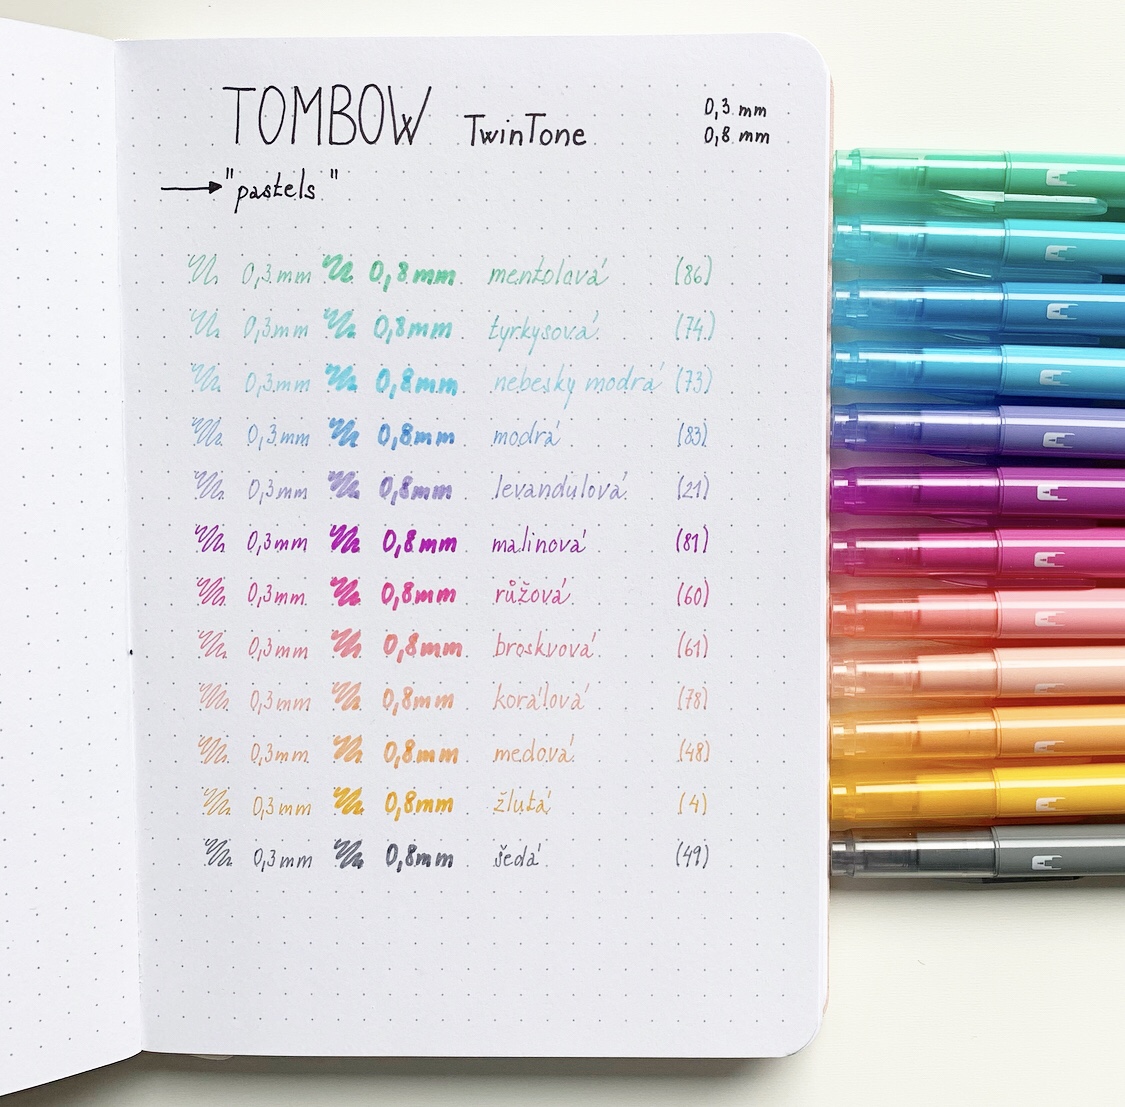 TOMBOW TwinTone
0,3 mm
0,8 mm
"pastels"
0,3mm 0,8mm mentolová (86)
0,3mm 0,8mm tyrkysová (74)
0,3mm 0,8mm nebesky modrá (73)
0,3mm 0,8mm modrá (83)
0,3mm 0,8mm levandulová (21)
0,3mm 0,8mm malinová (81)
0,3mm 0,8mm růžová (60)
0,3mm 0,8mm broskvová (61)
0,3mm 0,8mm korálová (78)
0,3mm 0,8mm medová (48)
0,3mm 0,8mm žlutá (4)
0,3mm 0,8mm šedá (49)